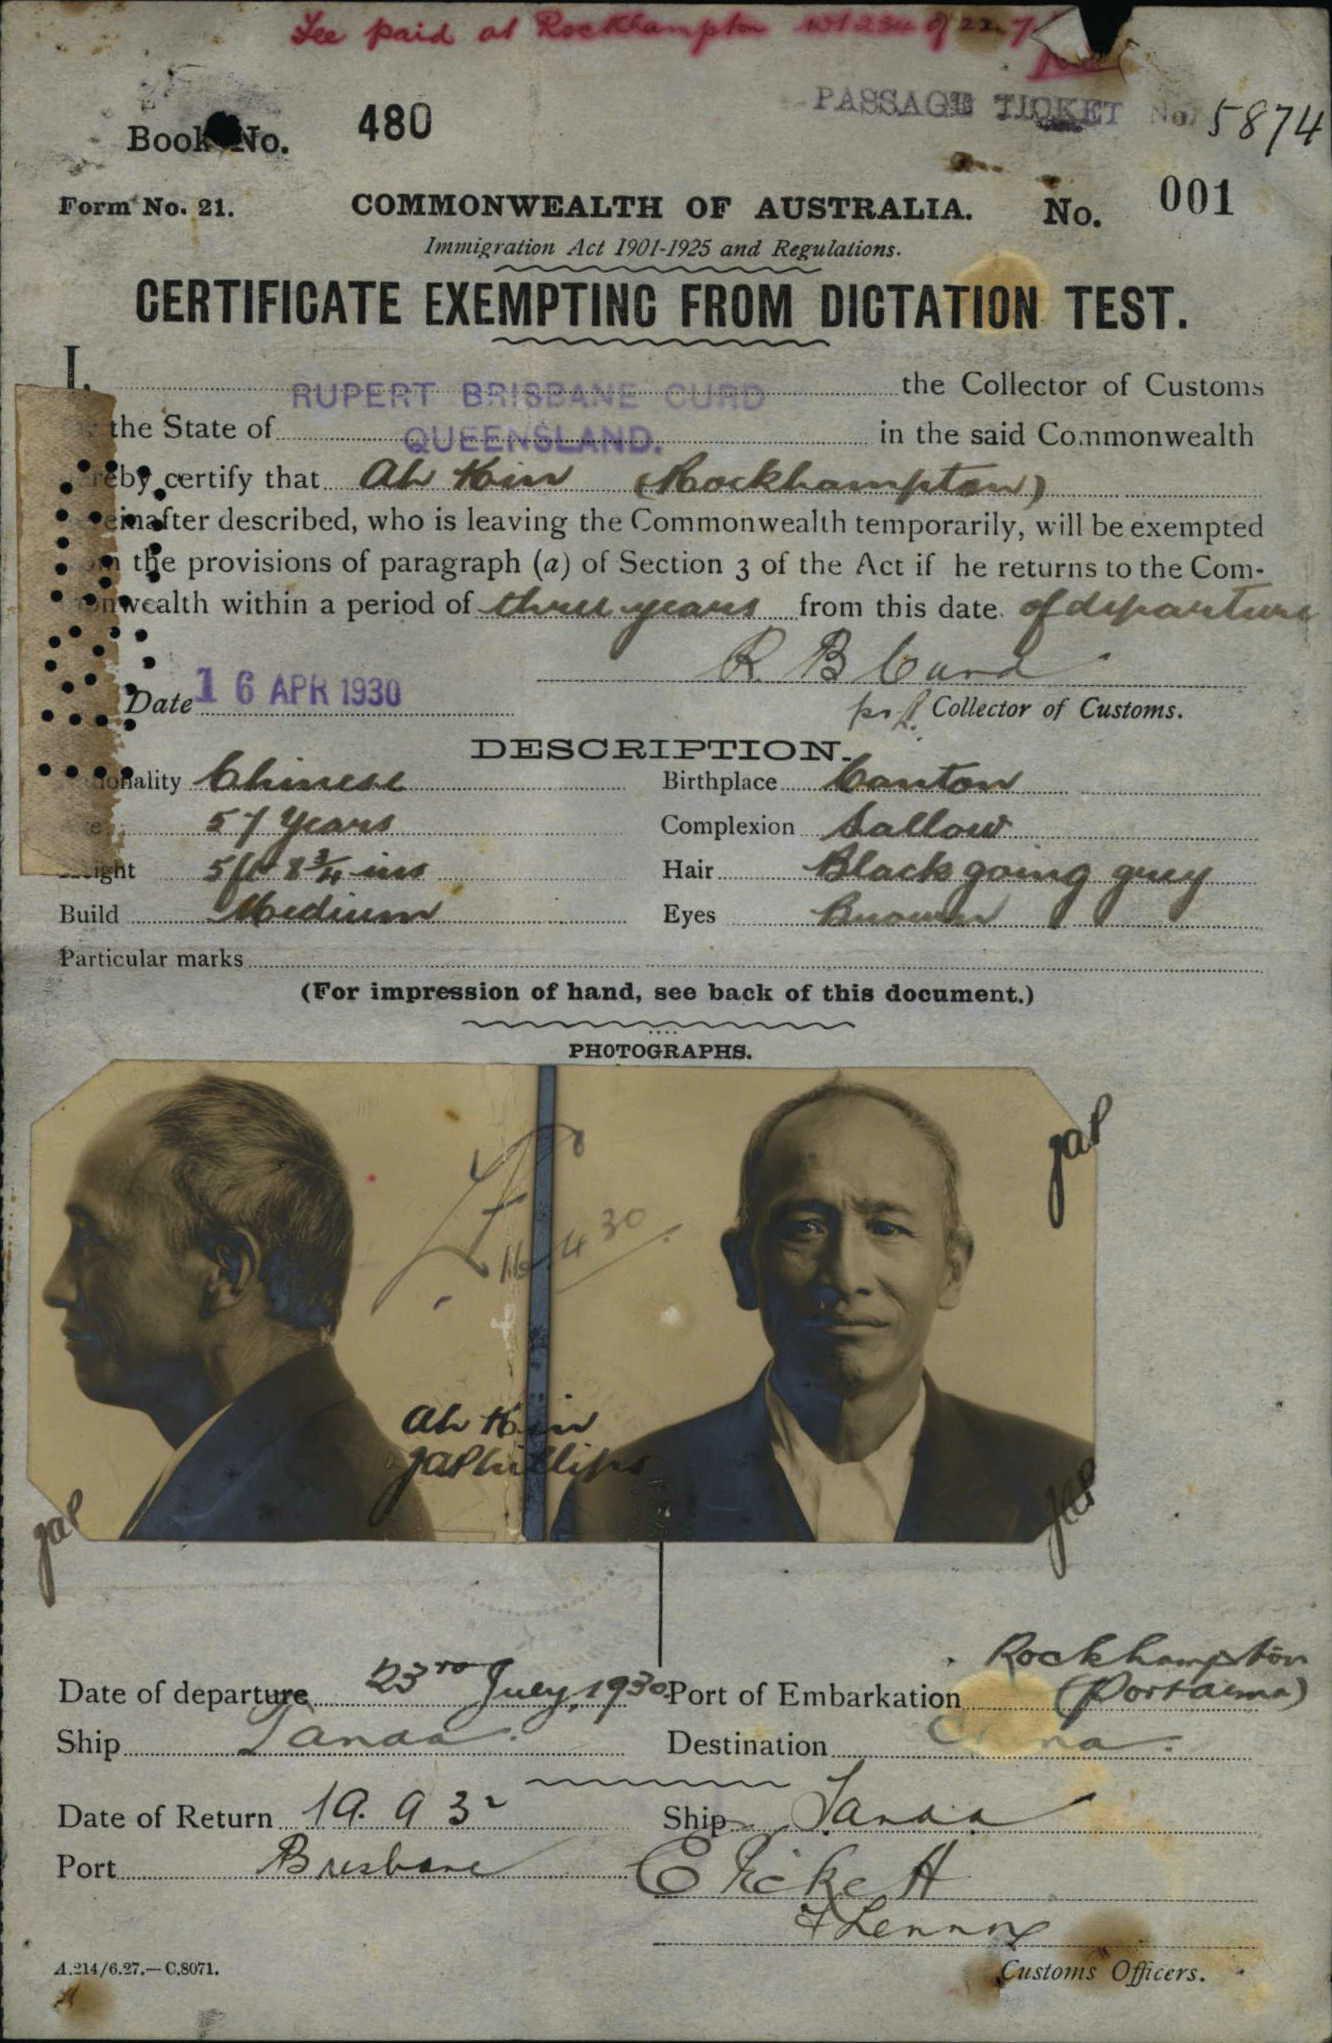 Fee paid at Rockhampton of 22. 7
PASSAGE TICKET No. 5874
Book No. 480
Form No. 21. COMMONWEALTH OF AUSTRALIA. No. 001
Immigration Act 1901-1925 and Regulations.
CERTIFICATE EXEMPTING FROM DICTATION TEST.
I, RUPERT BRISBANE CURD the Collector of Customs
the State of QUEENSLAND. in the said Commonwealth
reby certify that Ah Kin (Rockhampton)
einafter described, who is leaving the Commonwealth temporarily, will be exempted
the provisions of paragraph (a) of Section 3 of the Act if he returns to the Com-
onwealth within a period of three years from this date of departure
R B Curd
Date 16 APR 1930 Collector of Customs.
DESCRIPTION.
onality Chinese Birthplace Canton
57 Years Complexion Sallow
ight 5ft 8 3/4 ins Hair Black going grey
Build Medium Eyes Brown
Particular marks
(For impression of hand, see back of this document.)
PHOTOGRAPHS.
JAP
16.4.30
Ah Kin
JAPhillips
JAP
JAP
Rockhampton
Date of departure 23rd July, 1930 Port of Embarkation (Port Alma)
Ship Tanda. Destination C na.
Date of Return 19. 9 32 Ship Tanda
Port Brisbane
E Rickett
F Lennox
A.214/6.27.—C.8071. Customs Officers.